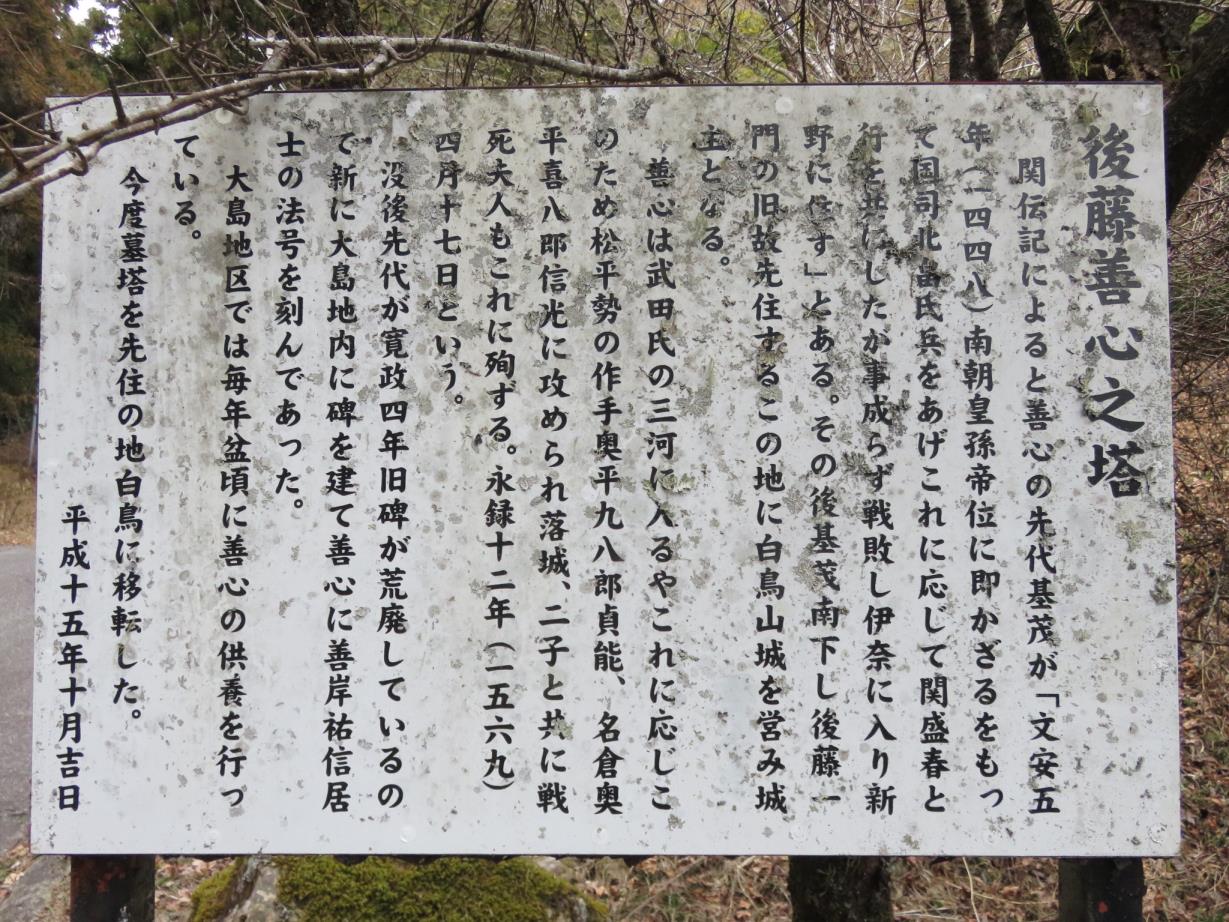 後藤善心之塔
関伝記によると善心の先代基茂が「文安五
年(一四四八)南朝皇孫帝位に即かざるをもっ
て国司北畠氏兵をあげこれに応じて関盛春と
行を共にしたが事成らず戦敗し伊奈に入り新
野に住す」とある。その後基茂南下し後藤一
門の旧故先住するこの地に白鳥山城を営み城
主となる。
善心は武田氏の三河に入るやこれに応じこ
のため松平勢の作手奥平九八郎貞能、名倉奥
平喜八郎信光に攻められ落城、二子と共に戦
死夫人もこれに殉ずる。永録十二年(一五六九)
四月十七日という。
没後先代が寛政四年旧碑が荒廃しているの
で新に大島地内に碑を建て善心に善岸祐信居
士の法号を刻んであった。
大島地区では毎年盆頃に善心の供養を行っ
ている。
今度墓塔を先住の地白鳥に移転した。
平成十五年十月吉日